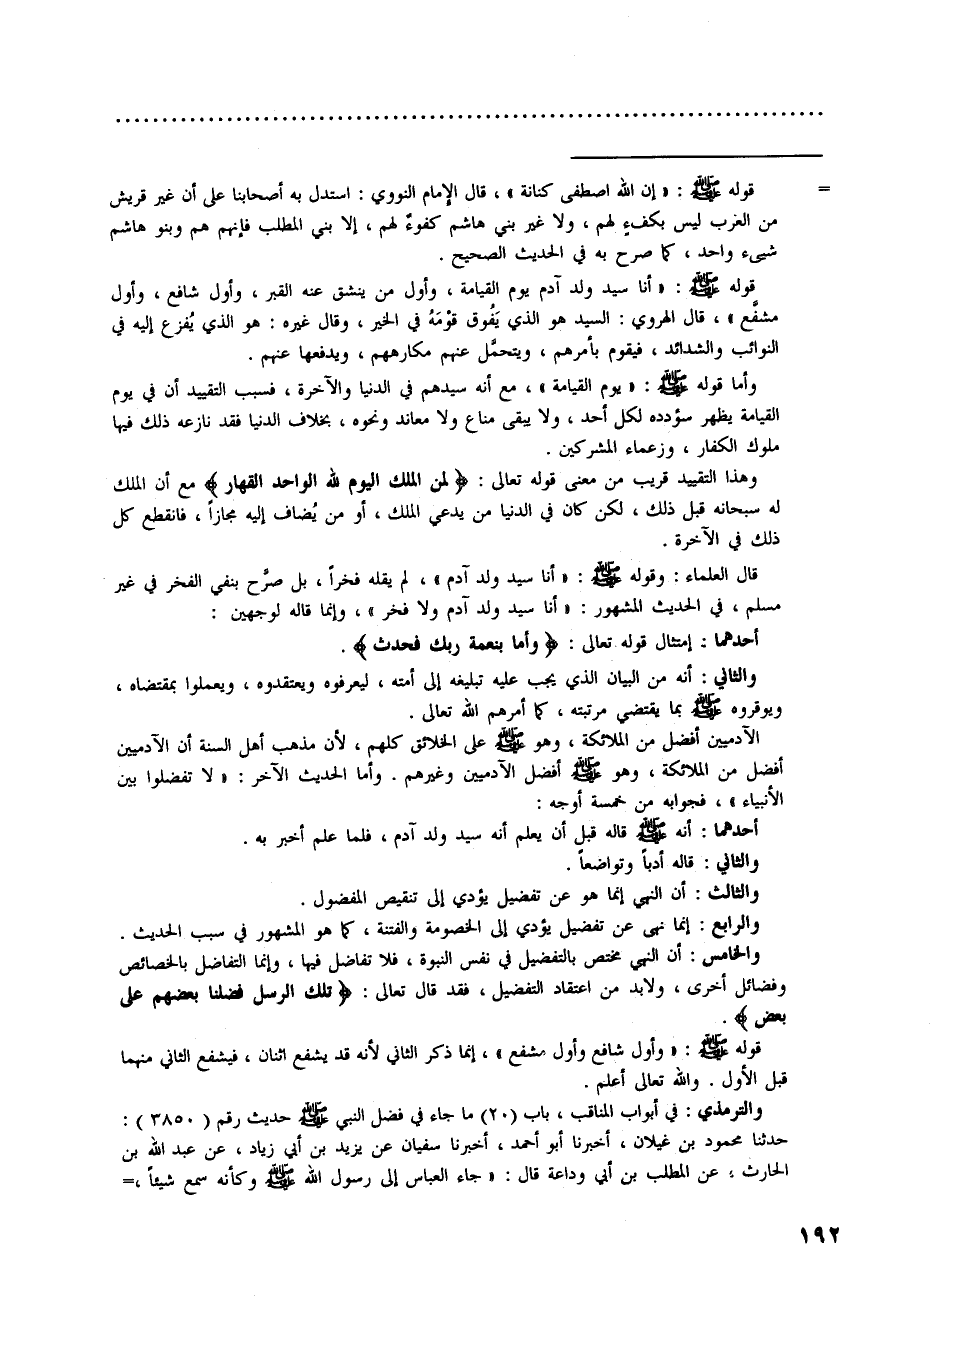 = قوله ﷺ : « إن الله اصطفى كنانة » ، قال الإمام النووي : استدل به أصحابنا على أن غير قريش
من العرب ليس بكفءٍ لهم ، ولا غير بني هاشم كفوءٌ لهم ، إلا بني المطلب فإنهم هم وبنو هاشم
شيىء واحد ، كما صرح به في الحديث الصحيح .
قوله ﷺ : « أنا سيد ولد آدم يوم القيامة ، وأول من ينشق عنه القبر ، وأول شافع ، وأول
مشفَّع » ، قال الهروي : السيد هو الذي يَفُوق قوْمَهُ في الخير ، وقال غيره : هو الذي يُفزع إليه في
النوائب والشدائد ، فيقوم بأمرهم ، ويتحمَّل عنهم مكارههم ، ويدفعها عنهم .
وأما قوله ﷺ : « يوم القيامة » ، مع أنه سيدهم في الدنيا والآخرة ، فسبب التقييد أن في يوم
القيامة يظهر سؤدده لكل أحد ، ولا يبقى مناع ولا معاند ونحوه ، بخلاف الدنيا فقد نازعه ذلك فيها
ملوك الكفار ، وزعماء المشركين .
وهذا التقييد قريب من معنى قوله تعالى : ﴿ لمن الملك اليوم لله الواحد القهار ﴾ مع أن الملك
له سبحانه قبل ذلك ، لكن كان في الدنيا من يدعي الملك ، أو من يُضاف إليه مجازاً ، فانقطع كل
ذلك في الآخرة .
قال العلماء : وقوله ﷺ : « أنا سيد ولد آدم » ، لم يقله فخراً ، بل صرَّح بنفي الفخر في غير
مسلم ، في الحديث المشهور : « أنا سيد ولد آدم ولا فخر » ، وإنما قاله لوجهين :
أحدهما : إمتثال قوله تعالى : ﴿ وأما بنعمة ربك فحدث ﴾ .
والثاني : أنه من البيان الذي يجب عليه تبليغه إلى أمته ، ليعرفوه ويعتقدوه ، ويعملوا بمقتضاه ،
ويوقروه ﷺ بما يقتضي مرتبته ، كما أمرهم الله تعالى .
الآدميين أفضل من الملائكة ، وهو ﷺ على الخلائق كلهم ، لأن مذهب أهل السنة أن الآدميين
أفضل من الملائكة ، وهو ﷺ أفضل الآدميين وغيرهم . وأما الحديث الآخر : « لا تفضلوا بين
الأنبياء » ، فجوابه من خمسة أوجه :
أحدهما : أنه ﷺ قاله قبل أن يعلم أنه سيد ولد آدم ، فلما علم أخبر به .
والثاني : قاله أدباً وتواضعاً .
والثالث : أن النهي إنما هو عن تفضيل يؤدي إلى تنقيص المفضول .
والرابع : إنما نهى عن تفضيل يؤدي إلى الخصومة والفتنة ، كما هو المشهور في سبب الحديث .
والخامس : أن النهي مختص بالتفضيل في نفس النبوة ، فلا تفاضل فيها ، وإنما التفاضل بالخصائص
وفضائل أخرى ، ولابد من اعتقاد التفضيل ، فقد قال تعالى : ﴿ تلك الرسل فضلنا بعضهم على
بعض ﴾ .
قوله ﷺ : « وأول شافع وأول مشفع » ، إنما ذكر الثاني لأنه قد يشفع اثنان ، فيشفع الثاني منهما
قبل الأول . والله تعالى أعلم .
والترمذي : في أبواب المناقب ، باب (٢٠) ما جاء في فضل النبي ﷺ حديث رقم ( ٣٨٥٠ ) :
حدثنا محمود بن غيلان ، أخبرنا أبو أحمد ، أخبرنا سفيان عن يزيد بن أبي زياد ، عن عبد الله بن
الحارث ، عن المطلب بن أبي وداعة قال : « جاء العباس إلى رسول الله ﷺ وكأنه سمع شيئاً ،=
١٩٢